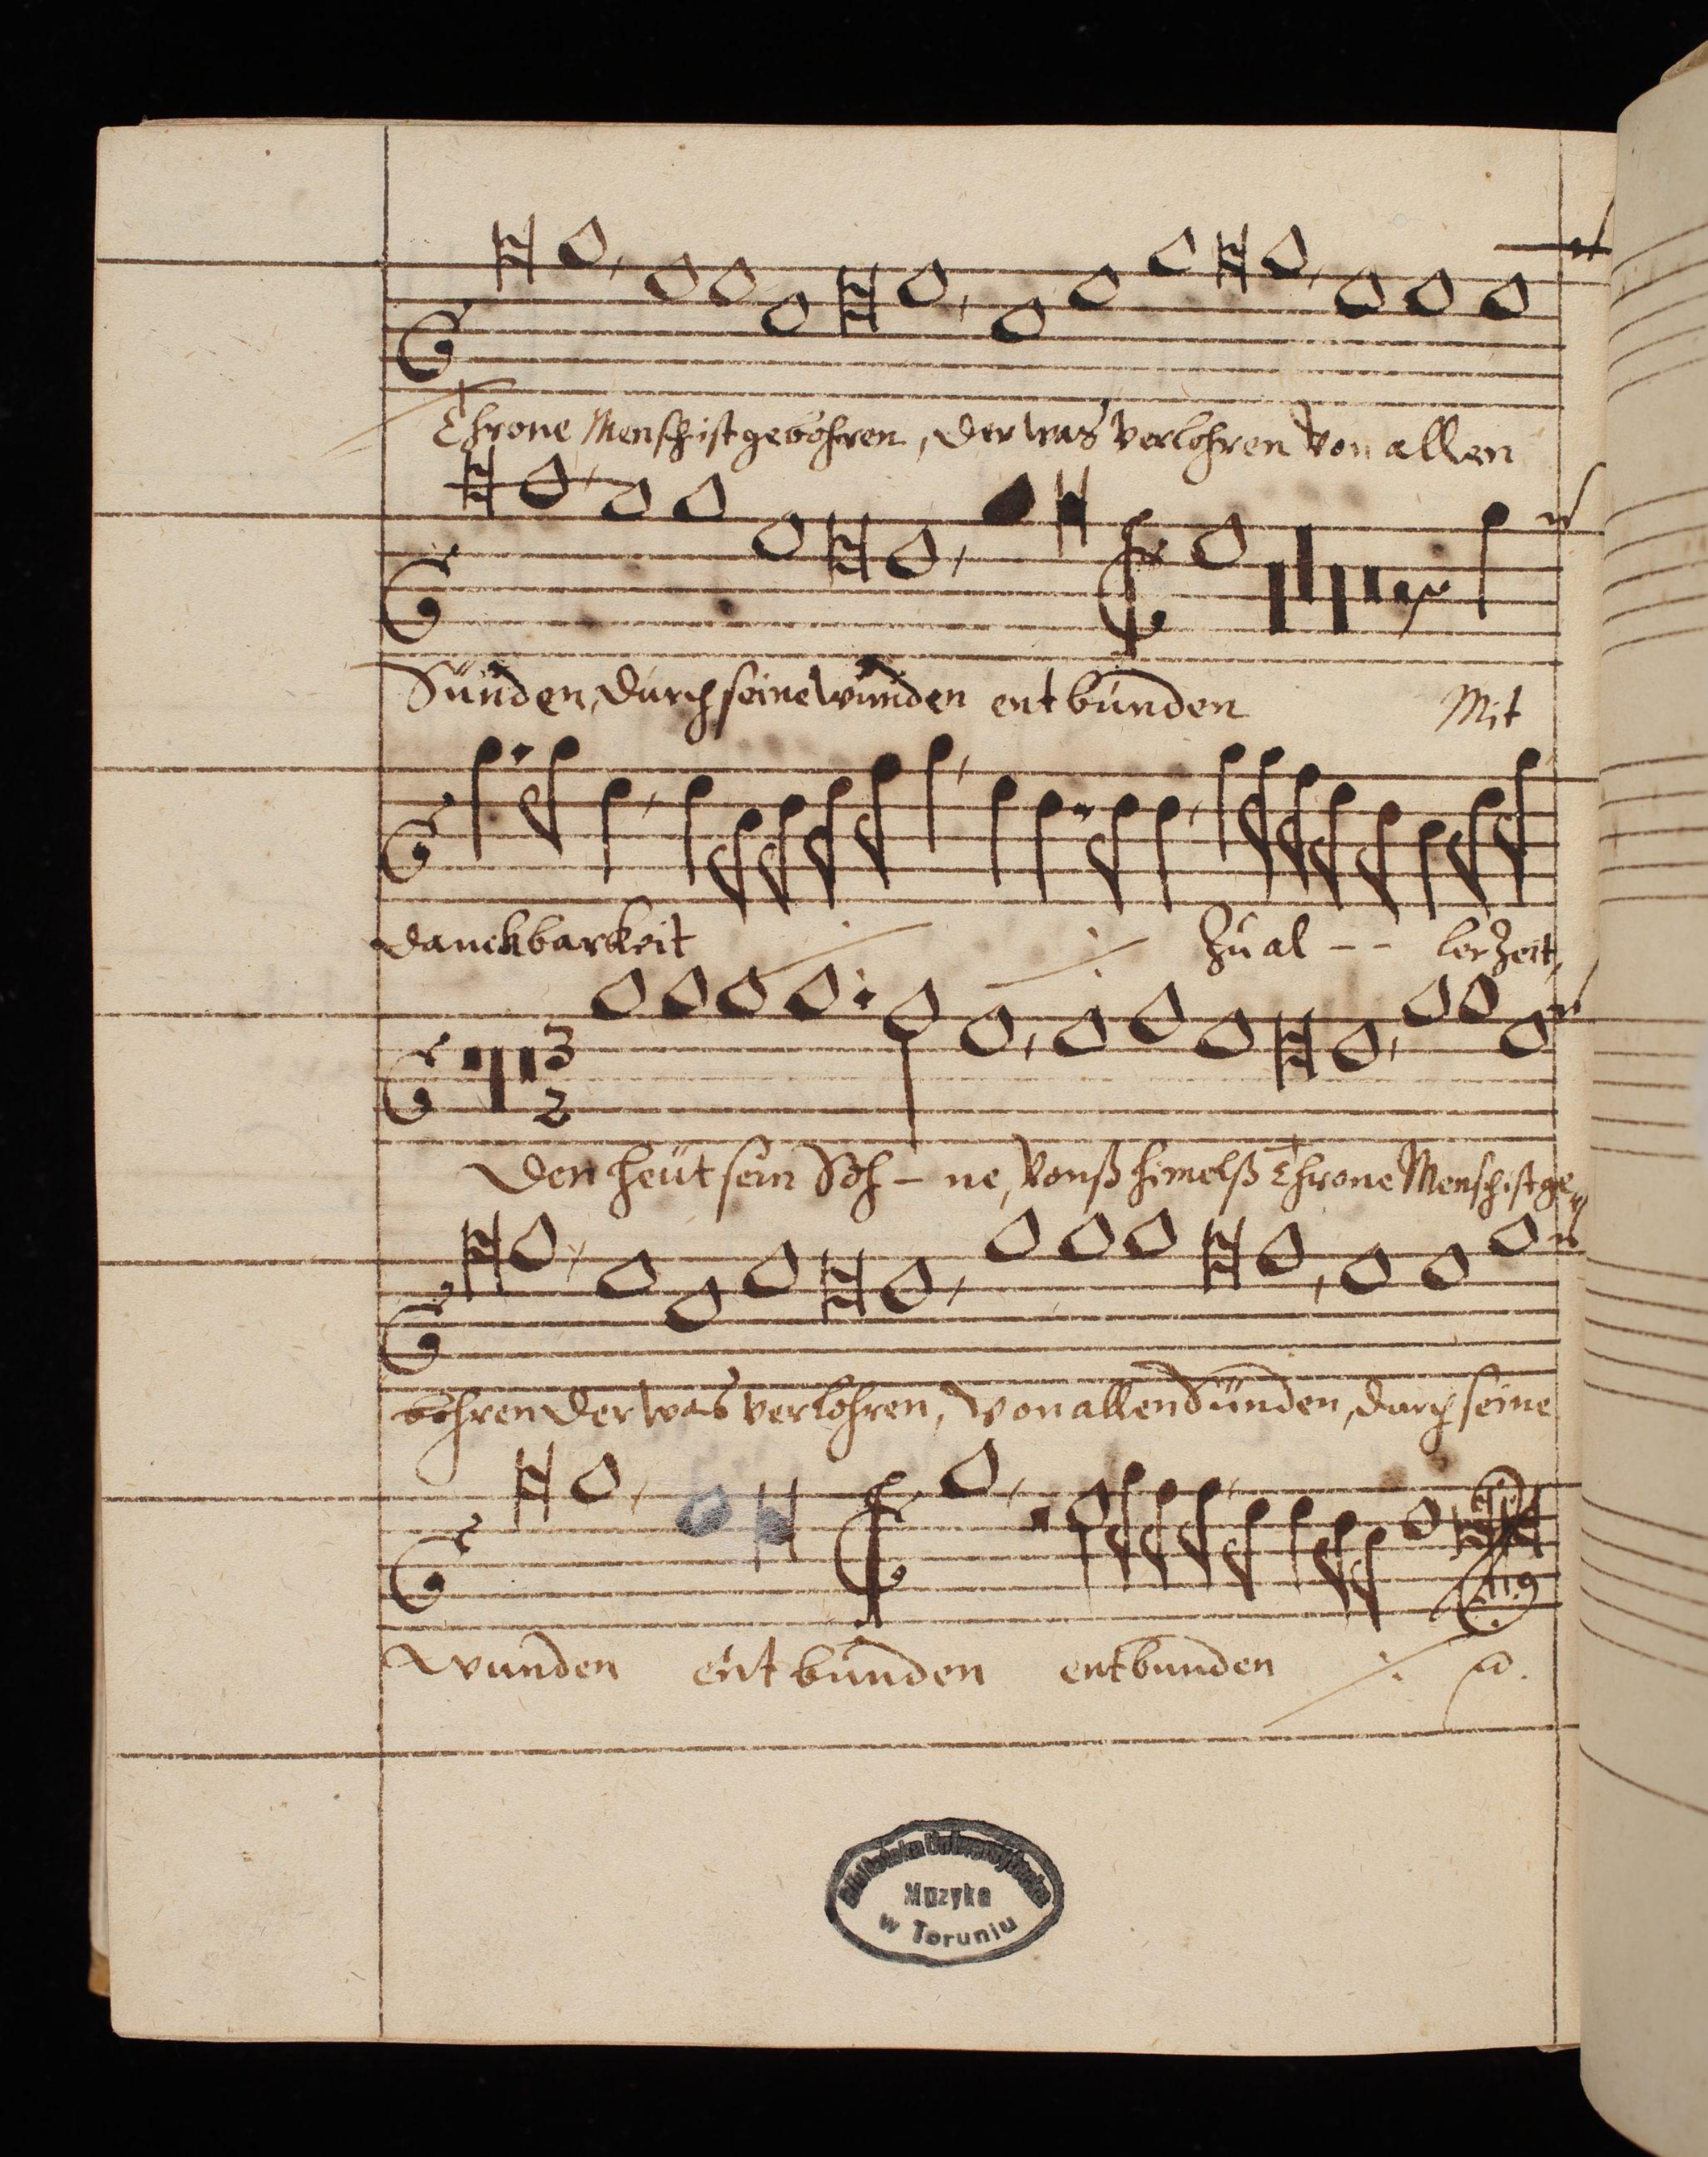 Throne Mensch ist gebohren, der was verlohren von allen
Sünden, durch seine wunden entbunden Mit
danckbarkeit Zu al - - ler Zeit,
3
2
Den heut sein Soh - ne, vonß himelß Throne Mensch ist ge
bohren der was verlohren, von allen Sünden, durch seine
wunden entbunden entbunden
Biblioteka Uniwersytecka
Muzyka
w Toruniu